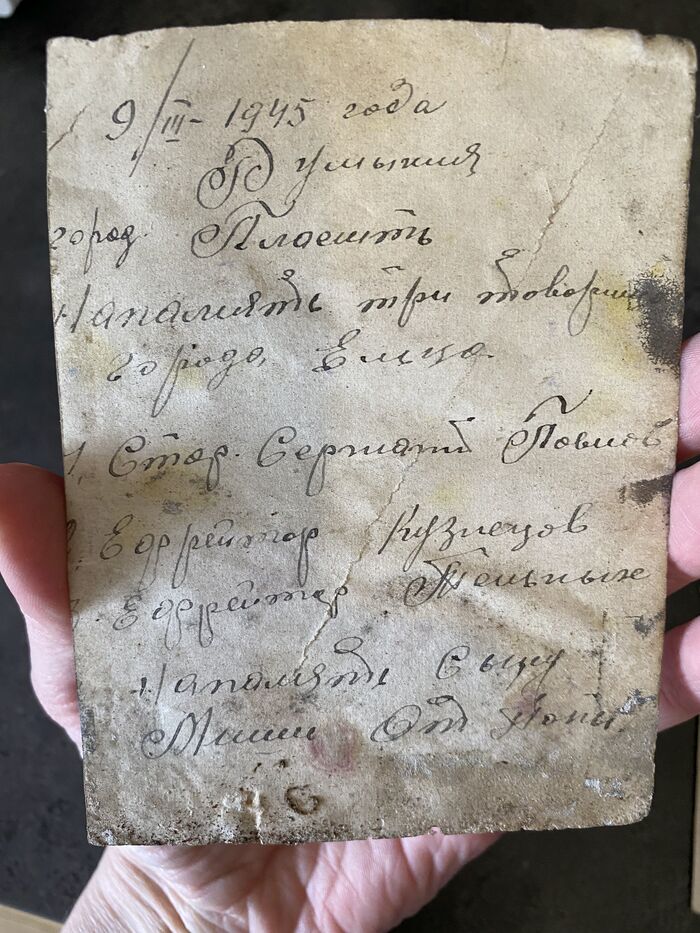 9/III - 1945 года
Румыния
город. Плоешть
На память три товарищ
города Ельца.
1, Стар. Сержант Павлов
2. Ефрейтор Кузнецов
3. Ефрейтор
На память Сыну
Миши От Папи.